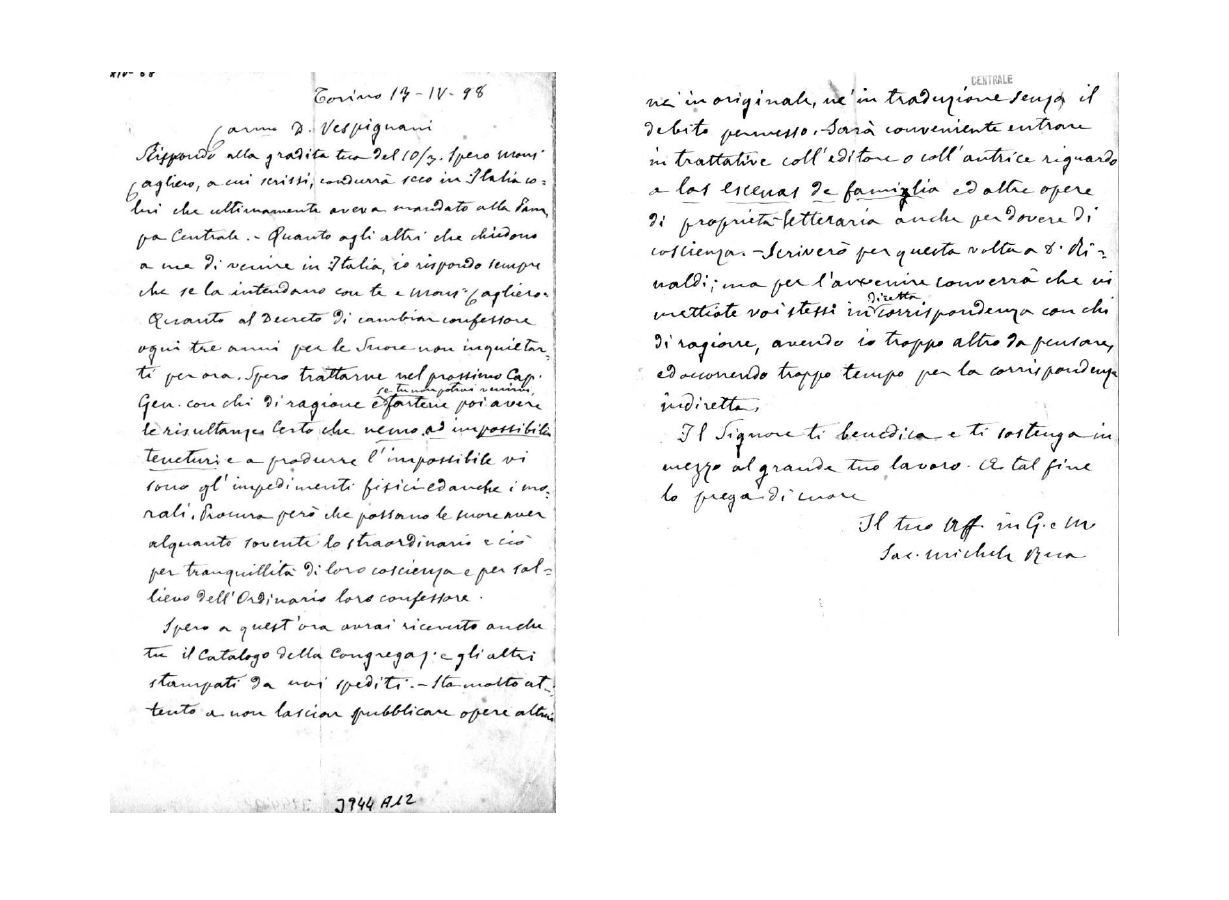 Torino 17-IV-98
Carmo D. Vespignani
Rispondo alla gradita tua del 10/3. Spero Mons.
Cagliero, a cui scrissi, condurrà seco in Italia co=
lui che ultimamente aveva mandato alla Pam
pa Centrale. - Quanto agli altri che chiedono
a me di venire in Italia, io rispondo sempre
che se la intendano con te e Mons. Cagliero.
Quanto al Decreto di cambiar confessore
ogni tre anni per le Suore non inquietar-
ti per ora. Spero trattarne nel prossimo Cap.
se tu non potrai venirvi
Gen. con chi di ragione e fartene poi avere
le risultanze. Certo che nemo ad impossibilia
tenetur; e a produrre l'impossibile vi
sono gl'impedimenti fisici ed anche i mo-
rali. Procura però che possano le suore aver
alquanto sovente lo straordinario e ciò
per tranquillità di loro coscienza e per sol=
lievo dell'Ordinario loro confessore.
Spero a quest'ora avrai ricevuto anche
tu il Catalogo della Congregaz. e gli altri
stampati da noi spediti. - Sta molto at-
tento a non lasciar pubblicare opere altrui
J944 A12
CENTRALE
nè in originale, nè in traduzione senza il
debito permesso. Sarà conveniente entrare
in trattative coll'editore o coll'autrice riguardo
a las escenas de famiglia ed altre opere
di proprietà letteraria anche per dovere di
coscienza. - Scriverò per questa volta a D. Ri=
naldi; ma per l'avvenire converrà che vi
diretta
mettiate voi stessi in corrispondenza con chi
di ragione, avendo io troppo altro da pensare,
ed occorrendo troppo tempo per la corrispondenza
indiretta.
Il Signore ti benedica e ti sostenga in
mezzo al grande tuo lavoro. A tal fine
lo prega di cuore
Il tuo Aff. in G. e M.
Sac. Michele Rua